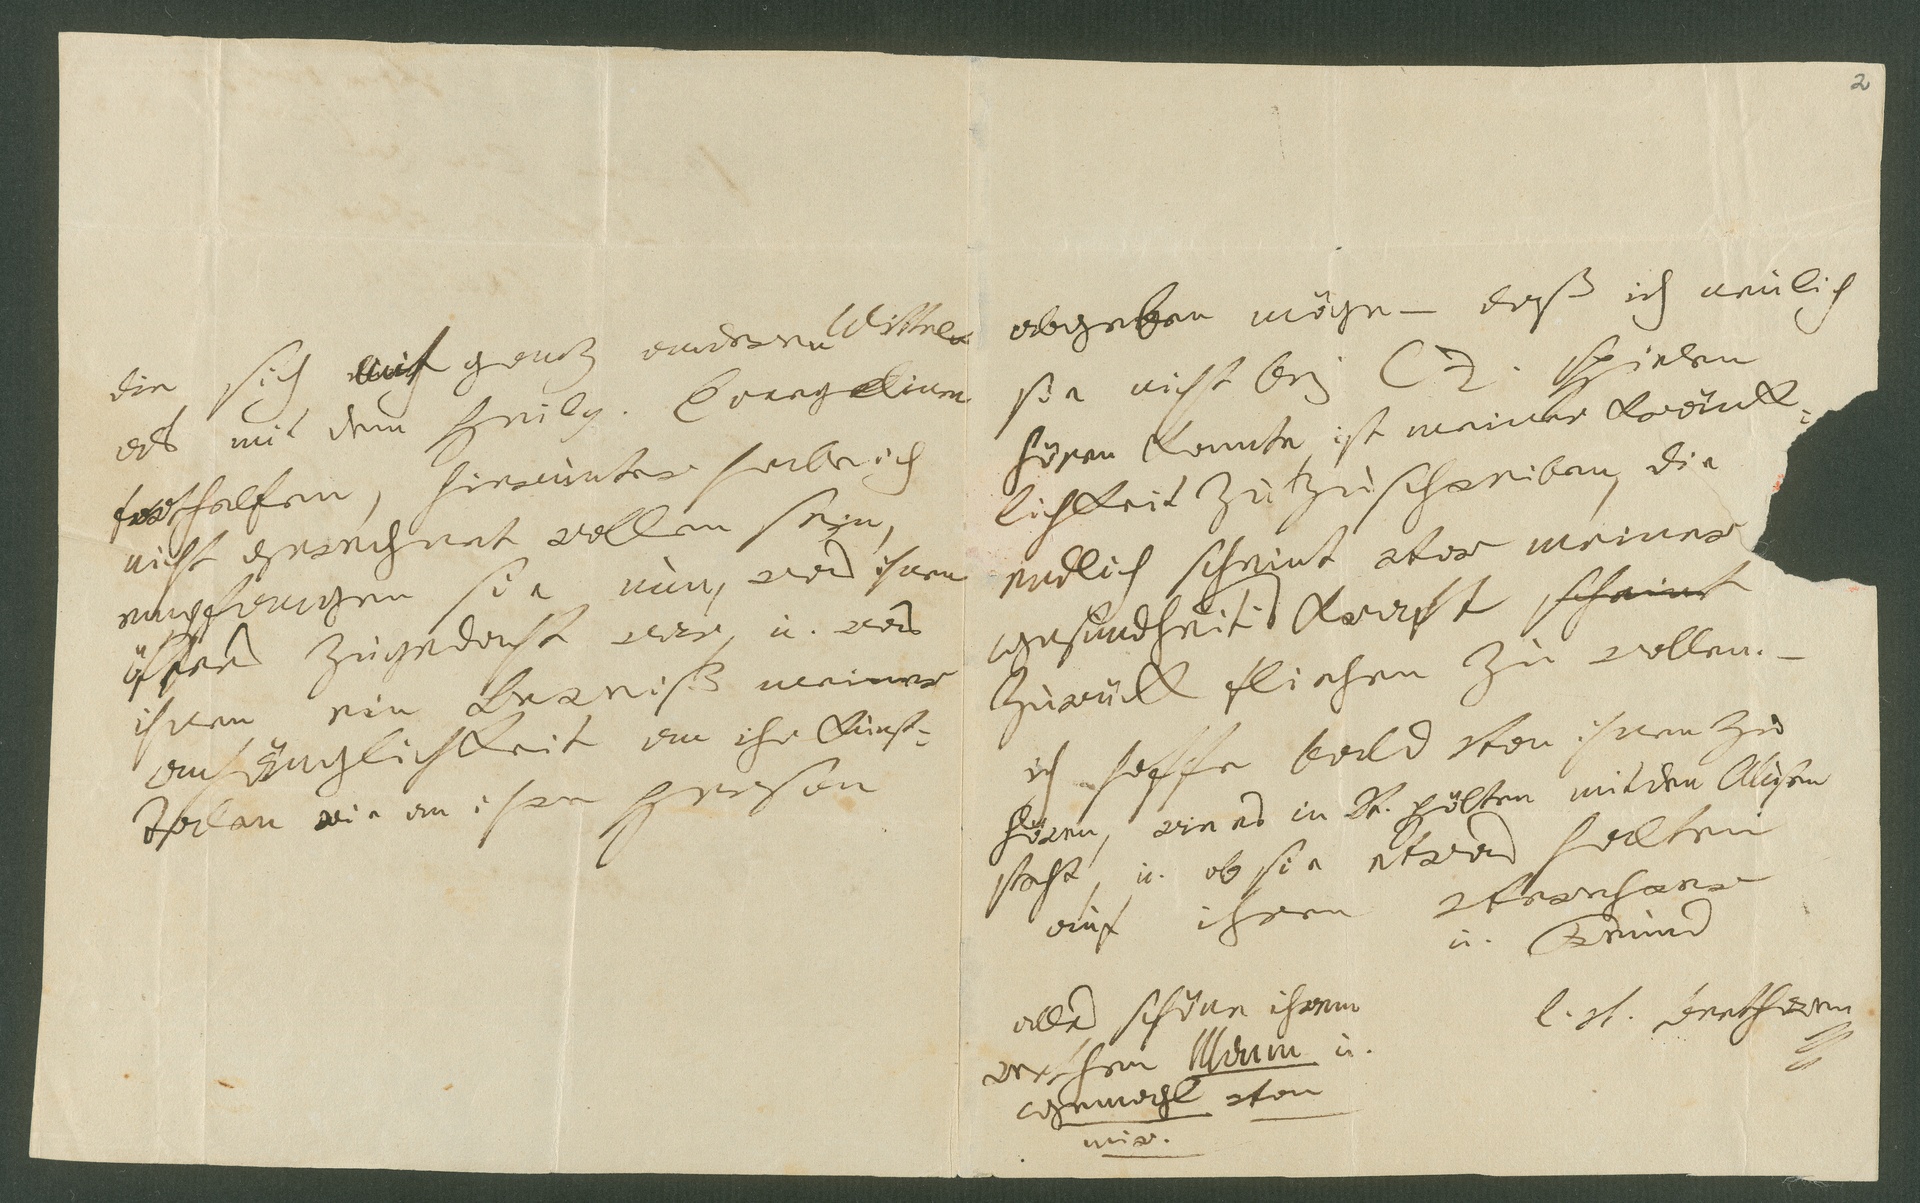 2
die sich auch ganz anderen Mitteln
als mit dem heilg. Evangelium
forthelfen, hierunter habe ich
nicht gerechnet wollen sein,
empfangen sie nun, was ihnen
öfters zugedacht war, u. was
ihnen ein Beweiß meiner
anhänglichkeit an ihr Kunst-
Talent wie an ihre Person
abgeben möge — daß ich neulich
sie nicht bej Cz. spielen
hören konnte, ist meiner Kränk-
lichkeit zuzuschreiben, die
endlich scheint vor meiner
gesundheits Kraft scheint
zurück fliehen zu wollen. —
ich hoffe bald von ihnen zu
hören, wie es in St. pölten mit den Musen
steht, u. ob sie etwas halten
auf ihren verehrer
u. Freund
l. v. Beethowen
alles schöne ihrem
werthen Mann u.
gemahl von
mir.